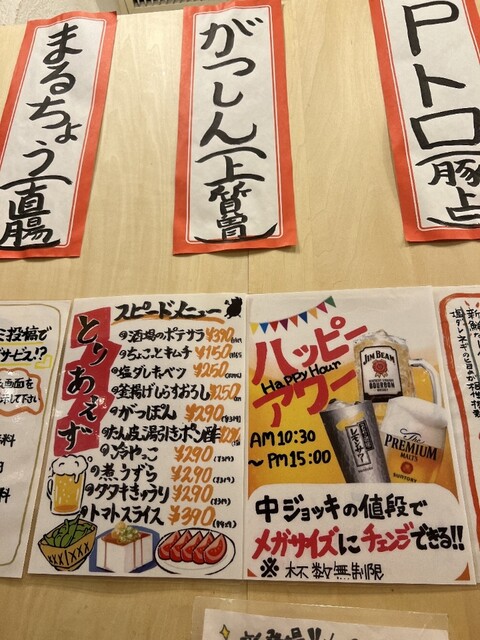 まるちょう(直腸)
がっしん(上質胃)
Pトロ(豚上
ミ投稿で
ービス!?
とりあえず
スピードメニュー
酒場のポテサラ ¥390
ちょこっとキムチ ¥150
塩ダレキャベツ ¥250
釜揚げしらすおろし ¥250
がつぽん ¥290
たん皮湯引きポン酢
冷やっこ ¥290
煮うずら ¥290
タタキきゅうり ¥290
トマトスライス ¥390
ハッピー
Happy Hour
アワー
AM 10:30
～PM 15:00
JIM BEAM
BOURBON
レモンサワー
The
PREMIUM
MALT'S
SUNTORY
中ジョッキの値段で
メガサイズにチェンジできる!!
※杯数無制限